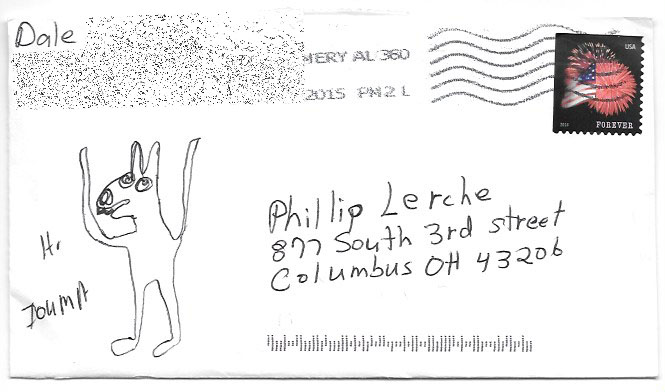 Dale
MERY AL 360
2015 PM 2 L
USA
FOREVER
Phillip Lerche
877 South 3rd street
Columbus OH 43206
Hi